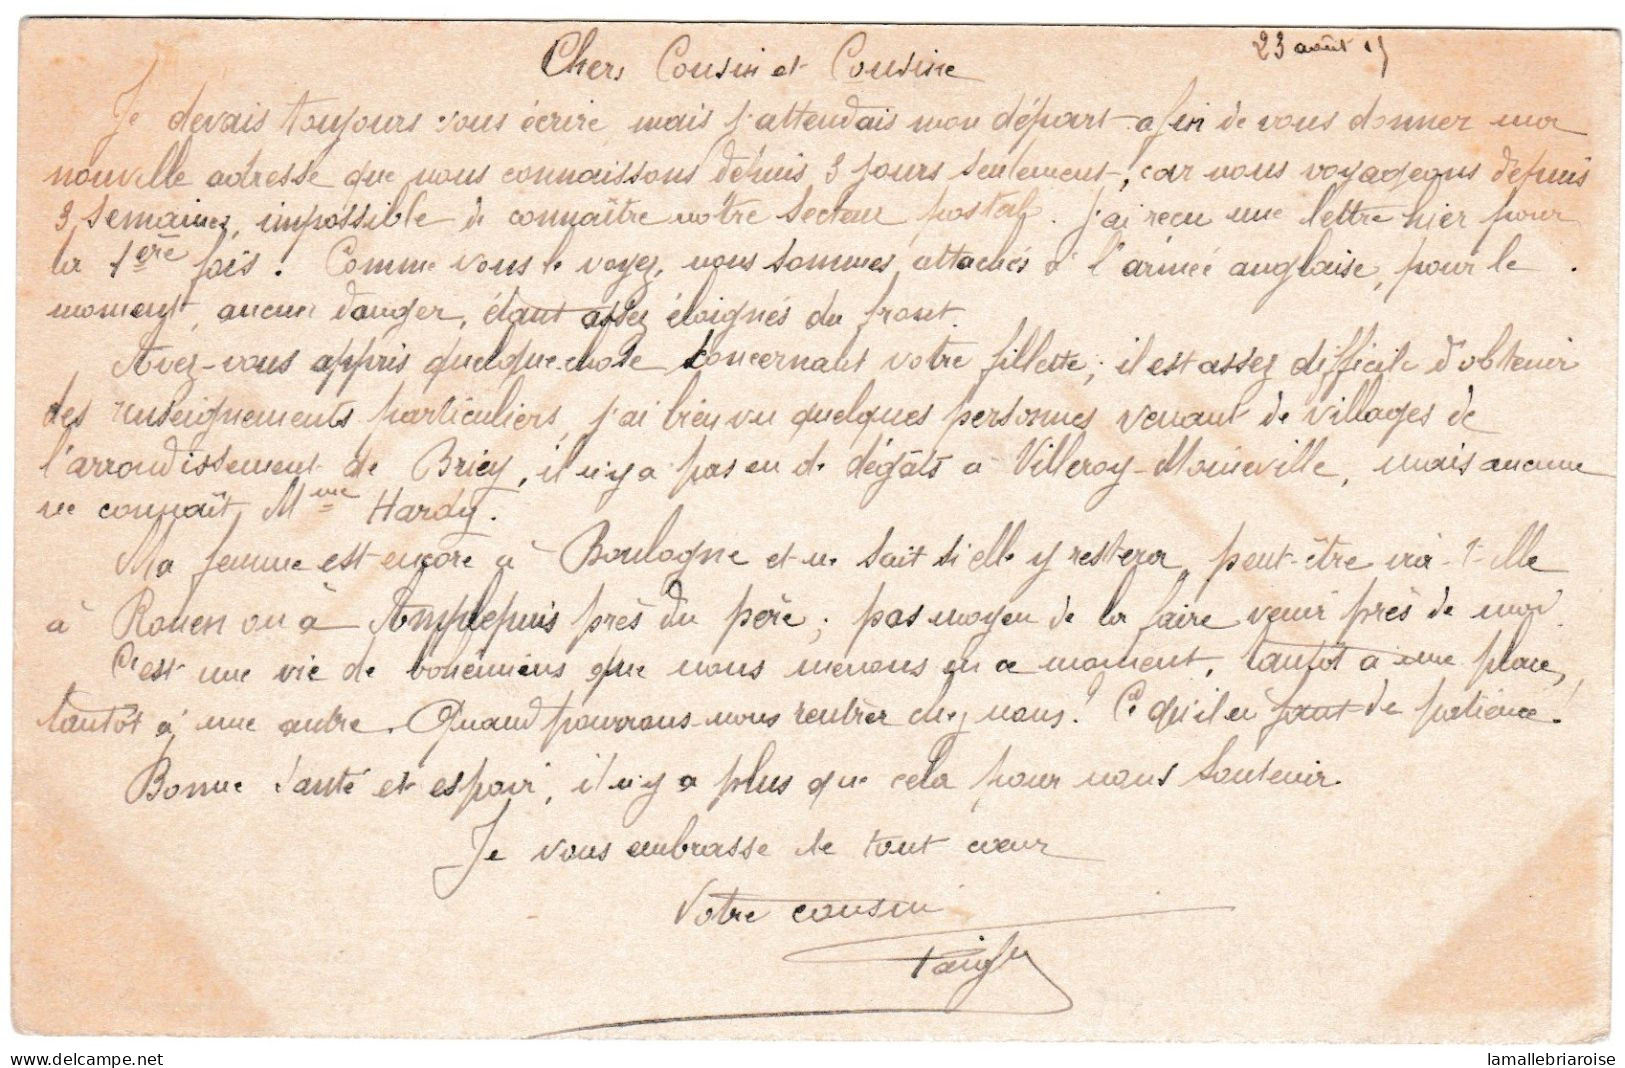 23 août 15
Chers Cousin et Cousine
Je devais toujours vous écrire, mais j'attendais mon départ afin de vous donner ma
nouvelle adresse que nous connaissons depuis 3 jours seulement, car nous voyageons depuis
3 semaines, impossible de connaître notre secteur postal. J'ai reçu une lettre hier pour
la 1ère fois. Comme vous le voyez, nous sommes attachés à l'armée anglaise, pour le
moment, aucun danger, étant assez éloignés du front.
Avez-vous appris quelque chose concernant votre fillette, il est assez difficile d'obtenir
des renseignements particuliers, j'ai bien vu quelques personnes venant de villages de
l'arrondissement de Briey, il n'y a pas eu de dégâts à Villeroy-Moineville, mais aucune
ne connaît Mme Hardy.
Ma femme est encore à Boulogne et ne sait si elle y restera, peut-être ira-t-elle
à Rouen ou à Amplepuis près du père, pas moyen de la faire venir près de moi.
C'est une vie de bohémiens que nous menons en ce moment, tantôt à une place,
tantôt à une autre. Quand pourrons-nous rentrer chez nous! Ce qu'il en faut de patience!
Bonne santé et espoir, il n'y a plus que cela pour nous soutenir.
Je vous embrasse de tout cœur
Votre cousin
lamallebriaroise